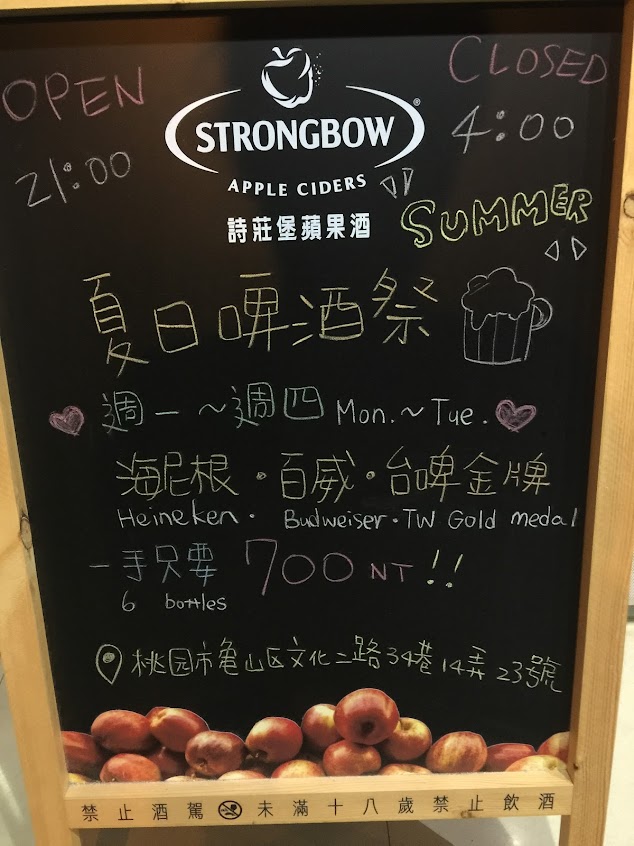 OPEN
21:00
CLOSED
4:00
STRONGBOW®
APPLE CIDERS
詩莊堡蘋果酒
SUMMER
夏日啤酒祭
週一～週四 Mon.~Tue.
海尼根・百威・台啤金牌
Heineken・Budweiser・TW Gold medal
一手只要 700 NT!!
6 bottles
桃园市亀山区文化二路34巷14弄23號
禁止酒駕 未滿十八歲禁止飲酒